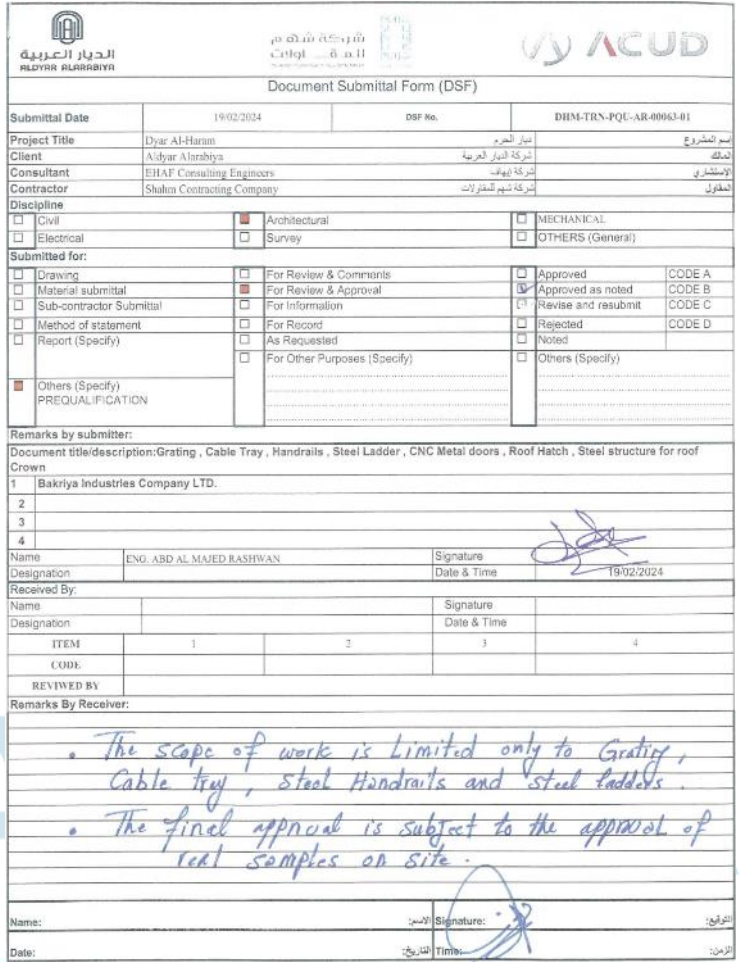 الديار العربية
ALDYAR ALARABIYA
شركة شهم
للمقاولات
ACUD
Document Submittal Form (DSF)
Submittal Date 19/02/2024 DSF No. DHM-TRN-PQU-AR-00063-01
Project Title Dyar Al-Haram ديار الحرم اسم المشروع
Client Aldyar Alarabiya شركة الديار العربية المالك
Consultant EHAF Consulting Engineers شركة إيهاف الإستشاري
Contractor Shahm Contracting Company شركة شهم للمقاولات المقاول
Discipline
Civil Architectural MECHANICAL
Electrical Survey OTHERS (General)
Submitted for:
Drawing For Review & Comments Approved CODE A
Material submittal For Review & Approval Approved as noted CODE B
Sub-contractor Submittal For Information Revise and resubmit CODE C
Method of statement For Record Rejected CODE D
Report (Specify) As Requested Noted
For Other Purposes (Specify) Others (Specify)
Others (Specify)
PREQUALIFICATION
Remarks by submitter:
Document title/description:Grating , Cable Tray , Handrails , Steel Ladder , CNC Metal doors , Roof Hatch , Steel structure for roof
Crown
1 Bakriya Industries Company LTD.
2
3
4
Name ENG. ABD AL MAJED RASHWAN Signature
Designation Date & Time 19/02/2024
Received By:
Name Signature
Designation Date & Time
ITEM 1 2 3 4
CODE
REVIWED BY
Remarks By Receiver:
• The scope of work is Limited only to Grating,
Cable tray, steel Handrails and steel ladders.
• The final approval is subject to the approval of
real samples on site.
Name: الاسم: Signature: التوقيع:
Date: التاريخ: Time: الزمن: